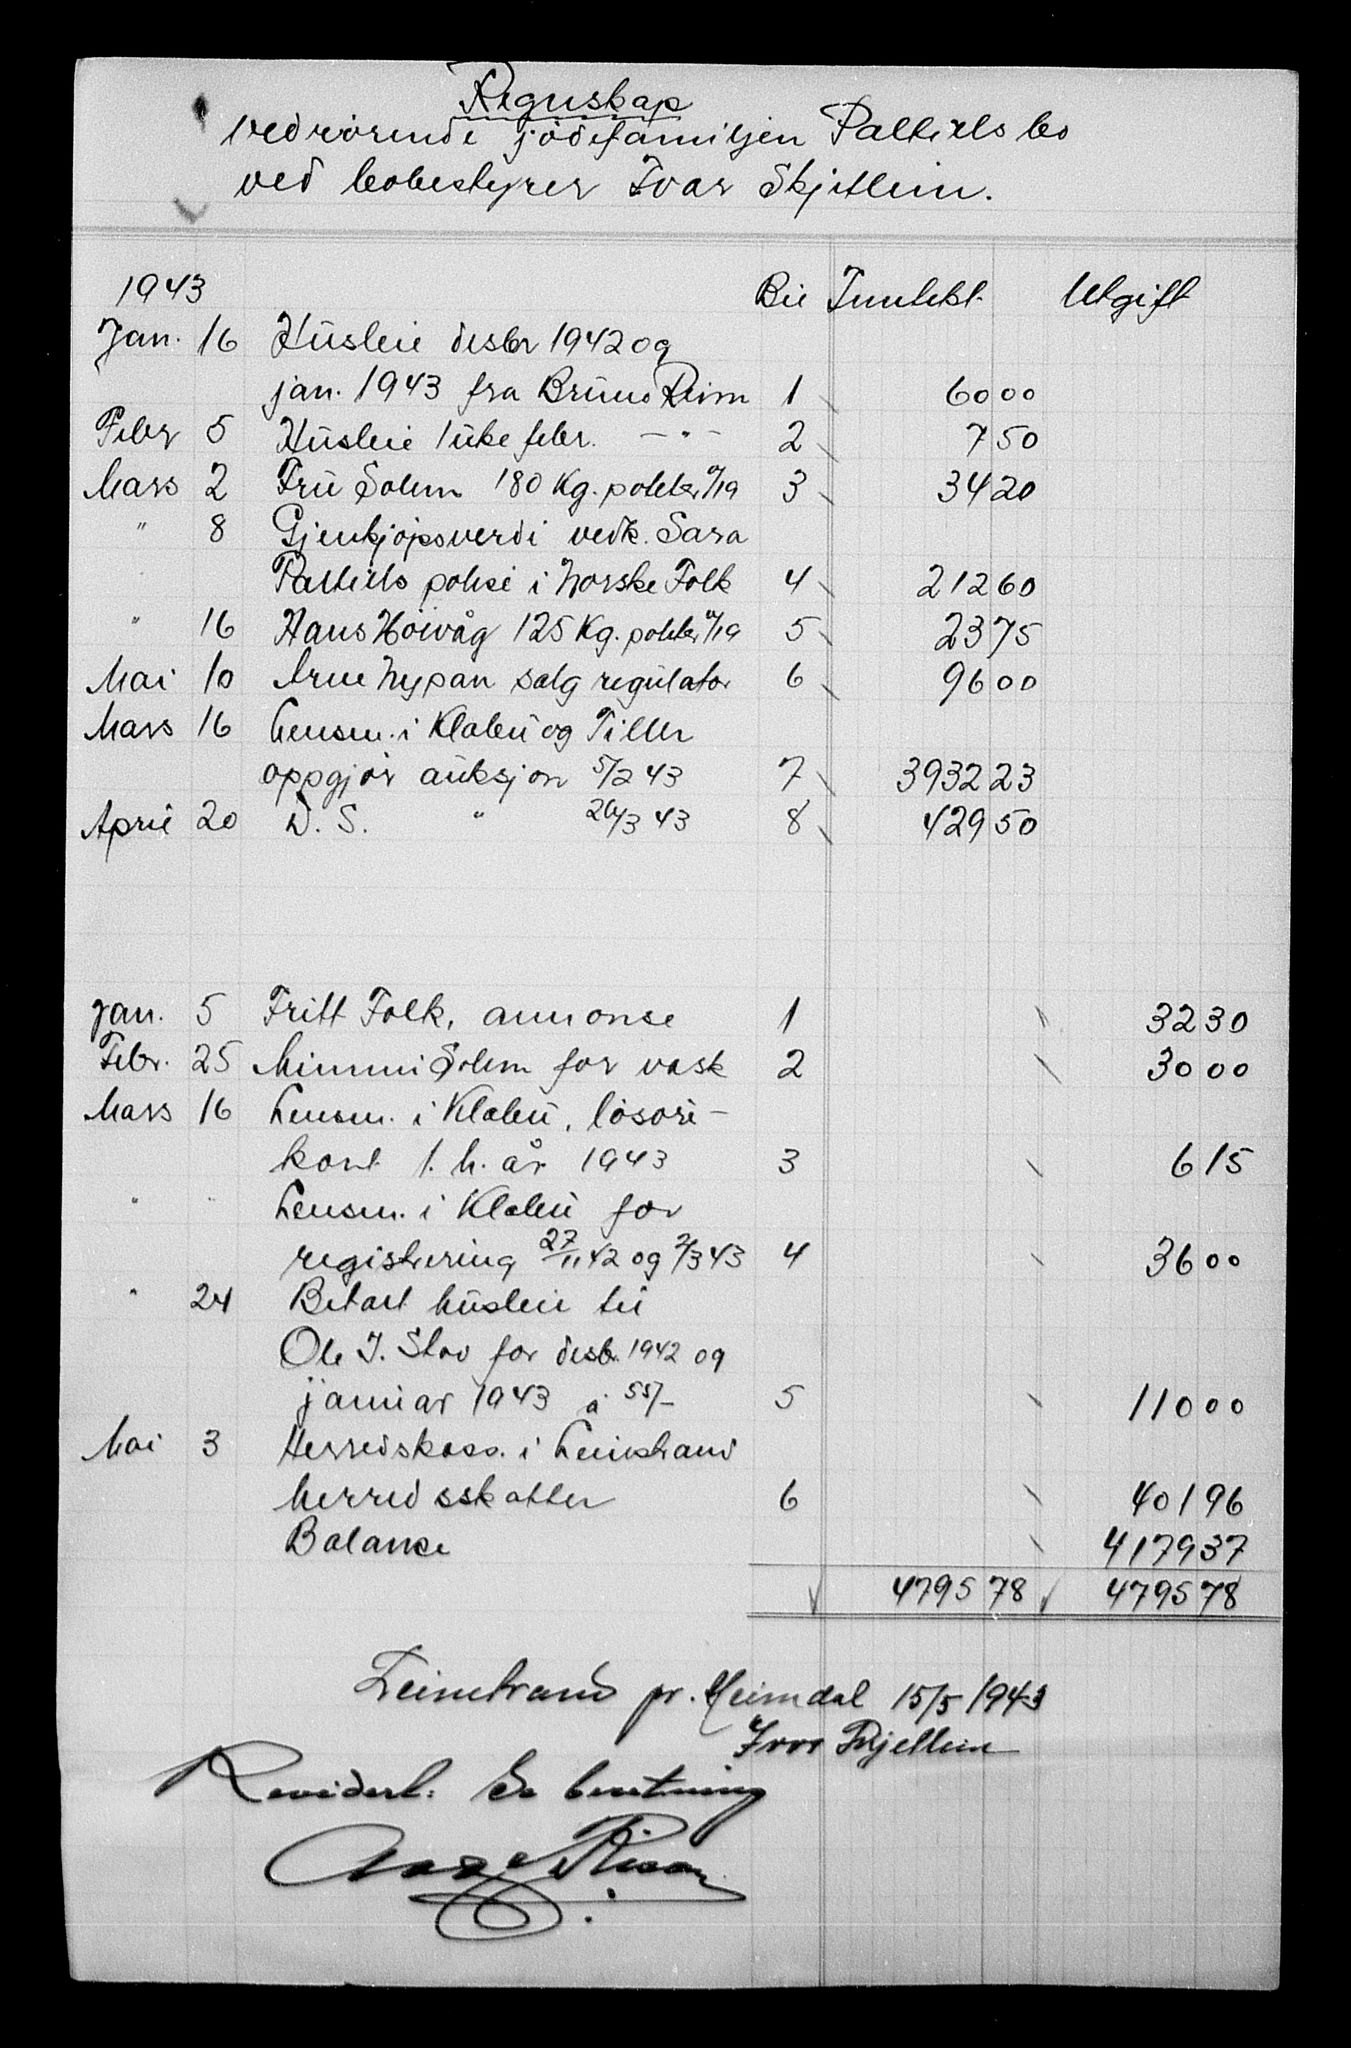 Regnskap
vedrörende jödefamiljen Paltiels bo
ved bobestyrer Ivar Skjetlein.
1943 Bil Inntekt Utgift
Jan. 16 Husleie desbr 1942 og
jan. 1943 fra Bruno Reim 1 60 00
Febr 5 Husleie 1 uke febr. — " — 2 7 50
Mars 2 Fru Solem 180 Kg. poteter a/19 3 34 20
" 8 Gjenkjöpsverdi vedk. Sara
Paltiels polise i Norske Folk 4 212 60
" 16 Hans Höivåg 125 Kg. poteter a/19 5 23 75
Mai 10 Arne Nypan salg regulator 6 96 00
Mars 16 Lensm. i Klæbu og Tiller
oppgjör auksjon 5/2 43 7 3932 23
April 20 D. S. " 26/3 43 8 429 50
Jan. 5 Fritt Folk, annonse 1 32 30
Febr. 25 Mimmi Solem for vask 2 30 00
Mars 16 Lensm. i Klæbu, lösöre-
kont 1. h. år 1943 3 6 15
" " Lensm. i Klæbu for
registrering 27/11 42 og 2/3 43 4 36 00
" 24 Betalt husleie til
Ole J. Slov for desb. 1942 og
januar 1943 a 55/- 5 110 00
Mai 3 Herredskass. i Leinstrand
herredsskatter 6 401 96
Balanse 4179 37
4795 78 4795 78
Leinstrand pr. Heimdal 15/5 1943
Ivar Skjetlein
Revidert: